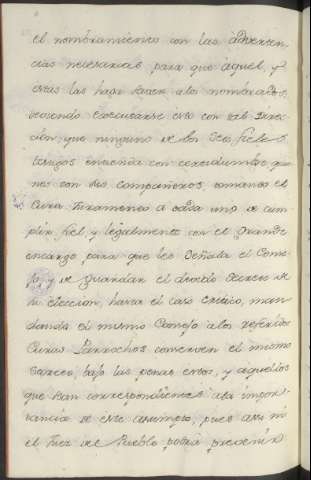 el nombramiento con las adverten-
cias necesarias para que aquel, y
estas las haga saber a los nombrados,
deviendo executarse esto con tal direc-
ción, que ninguno de los seis fieles
testigos entienda con certidumbre que
nes son sus compañeros, tomando el
Cura Juramento a cada uno de cum-
plir fiel y legalmente con el grande
encargo para que les señala el Conse-
jo, y de guardar el devido secreto de
su eleccion, hasta el caso critico, man-
dando el mismo Consejo a los referidos
Curas Parrochos conserven el mismo
secreto, bajo las penas estos, y aquellos
que sean correspondientes a la impor-
tancia de este asumpto, pues asi ni
el Juez de Pueblo podrá prevenir